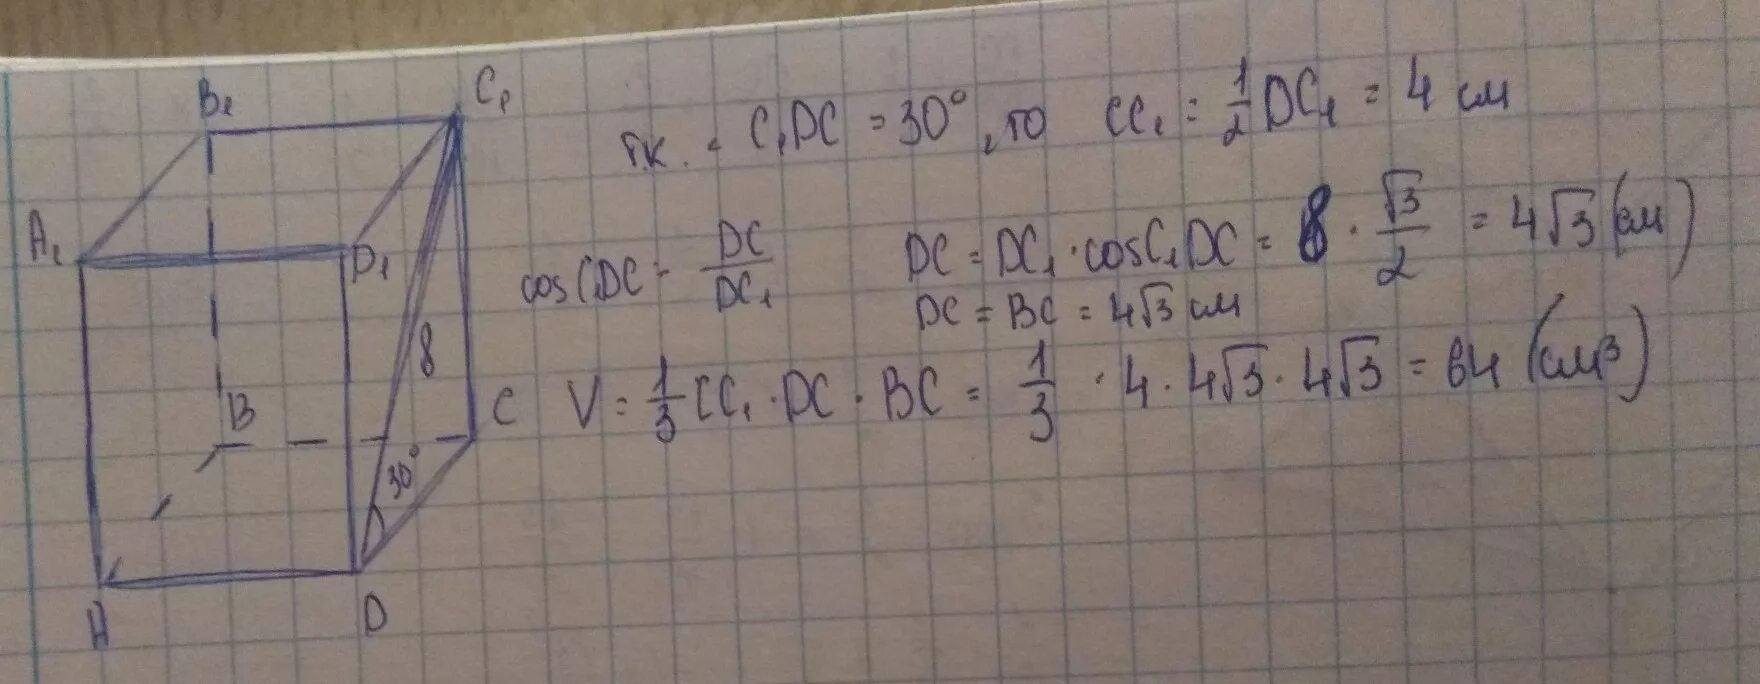 B₁
C₁
A₁
D₁
8
B
C
30°
A
D
т.к. ∠ C₁DC = 30°, то CC₁ = 1/2 DC₁ = 4 см
cos C₁DC = DC/DC₁
DC = DC₁ · cos C₁DC = 8 · √3/2 = 4√3 (см)
DC = BC = 4√3 см
V = 1/3 CC₁ · DC · BC = 1/3 · 4 · 4√3 · 4√3 = 64 (см³)